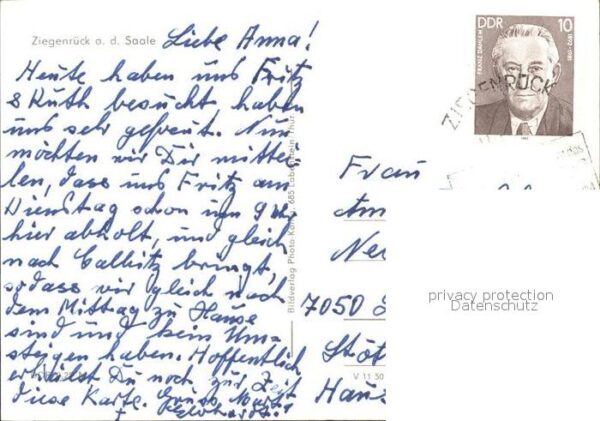 Ziegenrück a. d. Saale
Liebe Anna!
Heute haben uns Fritz
& Ruth besucht haben
uns sehr gefreut. Nun
möchten wir Dir mittei-
len, dass uns Fritz am
Dienstag schon um 9
hier abholt, und gleich
nach bringt,
sodass wir gleich nach
dem Mittag zu Hause
sind und kein Um-
steigen haben. Hoffentlich
erhälst Du noch zur Zeit
diese Karte. Gruss
Bildverlag Photo-König 685 Lobenstein Thür
V 11 50
DDR 10
FRANZ DAHLEM
1892-1981
ZIEGENRÜCK
Frau
7050
privacy protection
Datenschutz